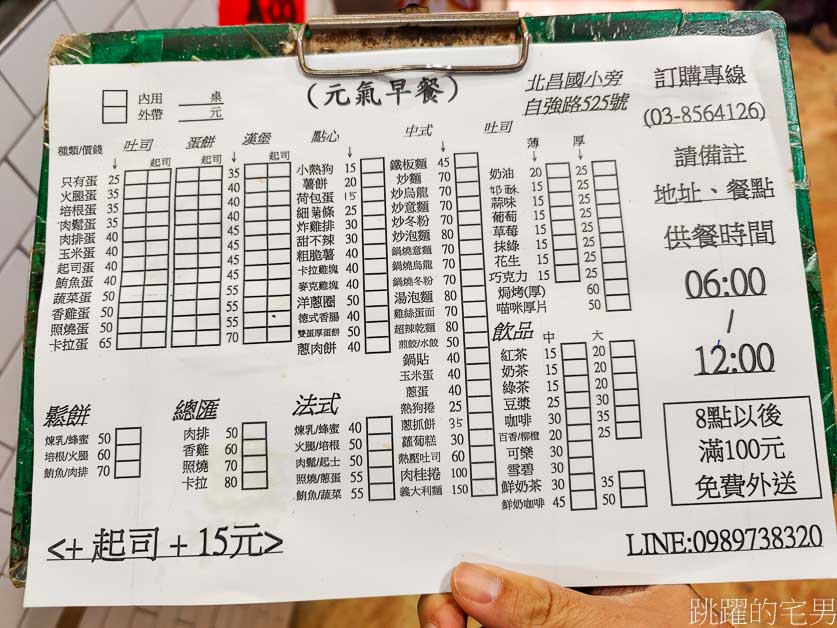 (元氣早餐)
內用 桌
外帶 元
北昌國小旁
自強路525號
訂購專線
(03-8564126)
請備註
地址、餐點
供餐時間
06:00
/
12:00
8點以後
滿100元
免費外送
LINE:0989738320
種類/價錢 吐司 蛋餅 漢堡
起司 起司 起司
只有蛋 25 35
火腿蛋 35 40
培根蛋 35 40
肉鬆蛋 35 40
肉排蛋 40 45
玉米蛋 40 45
起司蛋 40 45
鮪魚蛋 40 45
蔬菜蛋 50 55
香雞蛋 50 55
照燒蛋 50 55
卡拉蛋 65 70
點心
小熱狗 15
薯餅 20
荷包蛋 15
細薯條 25
炸雞排 30
甜不辣 30
粗脆薯 40
卡拉雞塊 40
麥克雞塊 40
洋蔥圈 50
德式香腸 40
雙蛋厚蛋餅 50
蔥肉餅 40
中式
鐵板麵 45
炒麵 70
炒烏龍 70
炒意麵 70
炒冬粉 70
炒泡麵 80
鍋燒意麵 70
鍋燒烏龍 70
鍋燒冬粉 70
湯泡麵 80
雞絲蛋面 70
超辣乾麵 80
煎餃/水餃 50
鍋貼 40
玉米蛋 40
蔥蛋 40
熱狗捲 25
蔥抓餅 35
蘿蔔糕 30
熱壓吐司 60
肉桂捲 100
義大利麵 150
吐司 薄 厚
奶油 20 25
奶酥 15 25
蒜味 15 25
葡萄 15 25
草莓 15 25
抹綠 15 25
花生 15 25
巧克力 15 25
焗烤(厚) 60
喵咪厚片 50
飲品 中 大
紅茶 15 20
奶茶 15 20
綠茶 15 20
豆漿 25 30
咖啡 30 35
百香/柳橙 20 25
可樂 30
雪碧 30
鮮奶茶 30 35
鮮奶咖啡 45 50
鬆餅
煉乳/蜂蜜 50
培根/火腿 60
鮪魚/肉排 70
總匯
肉排 50
香雞 60
照燒 70
卡拉 80
法式
煉乳/蜂蜜 40
火腿/培根 50
肉鬆/起士 50
照燒/蔥蛋 55
鮪魚/蔬菜 55
<+ 起司 + 15元>
跳躍的宅男